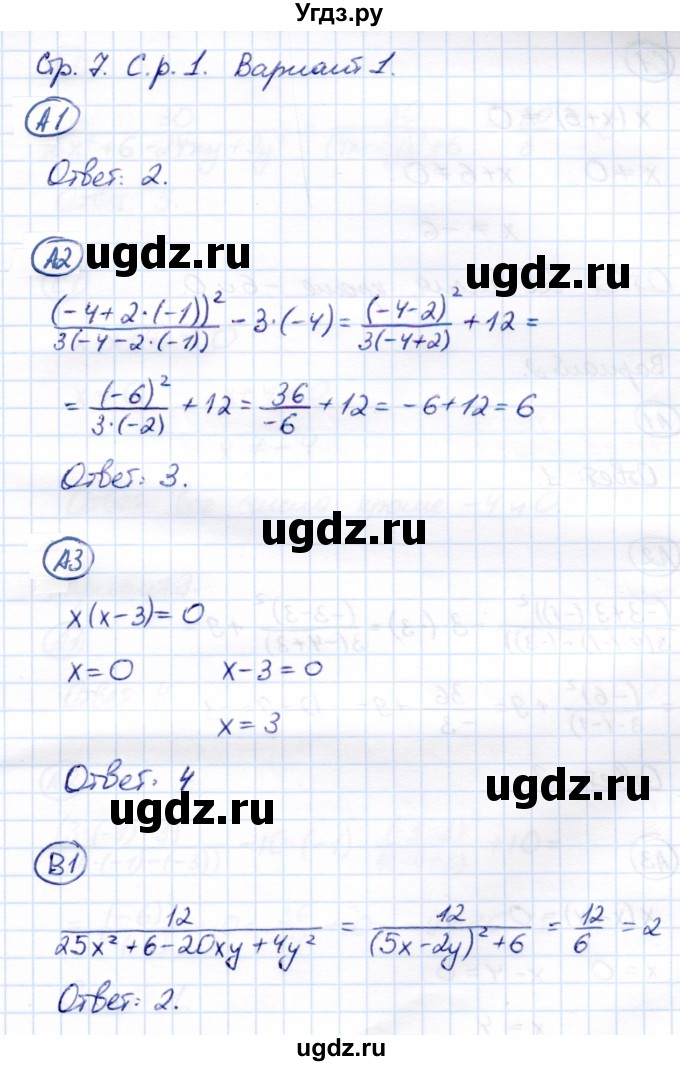 Угдз.ру
Стр. 7. С.р. 1. Вариант 1.
А1
Ответ: 2.
А2 ugdz.ru
(-4+2·(-1))²/3(-4-2·(-1)) - 3·(-4) = (-4-2)²/3(-4+2) + 12 =
= (-6)²/3·(-2) + 12 = 36/-6 + 12 = -6+12 = 6
Ответ: 3.
ugdz.ru
А3
x(x-3)=0
x=0 x-3=0
x=3
Ответ: 4
ugdz.ru ugdz.ru
В1
12/25x²+6-20xy+4y² = 12/(5x-2y)²+6 = 12/6 = 2
Ответ: 2.
ugdz.ru